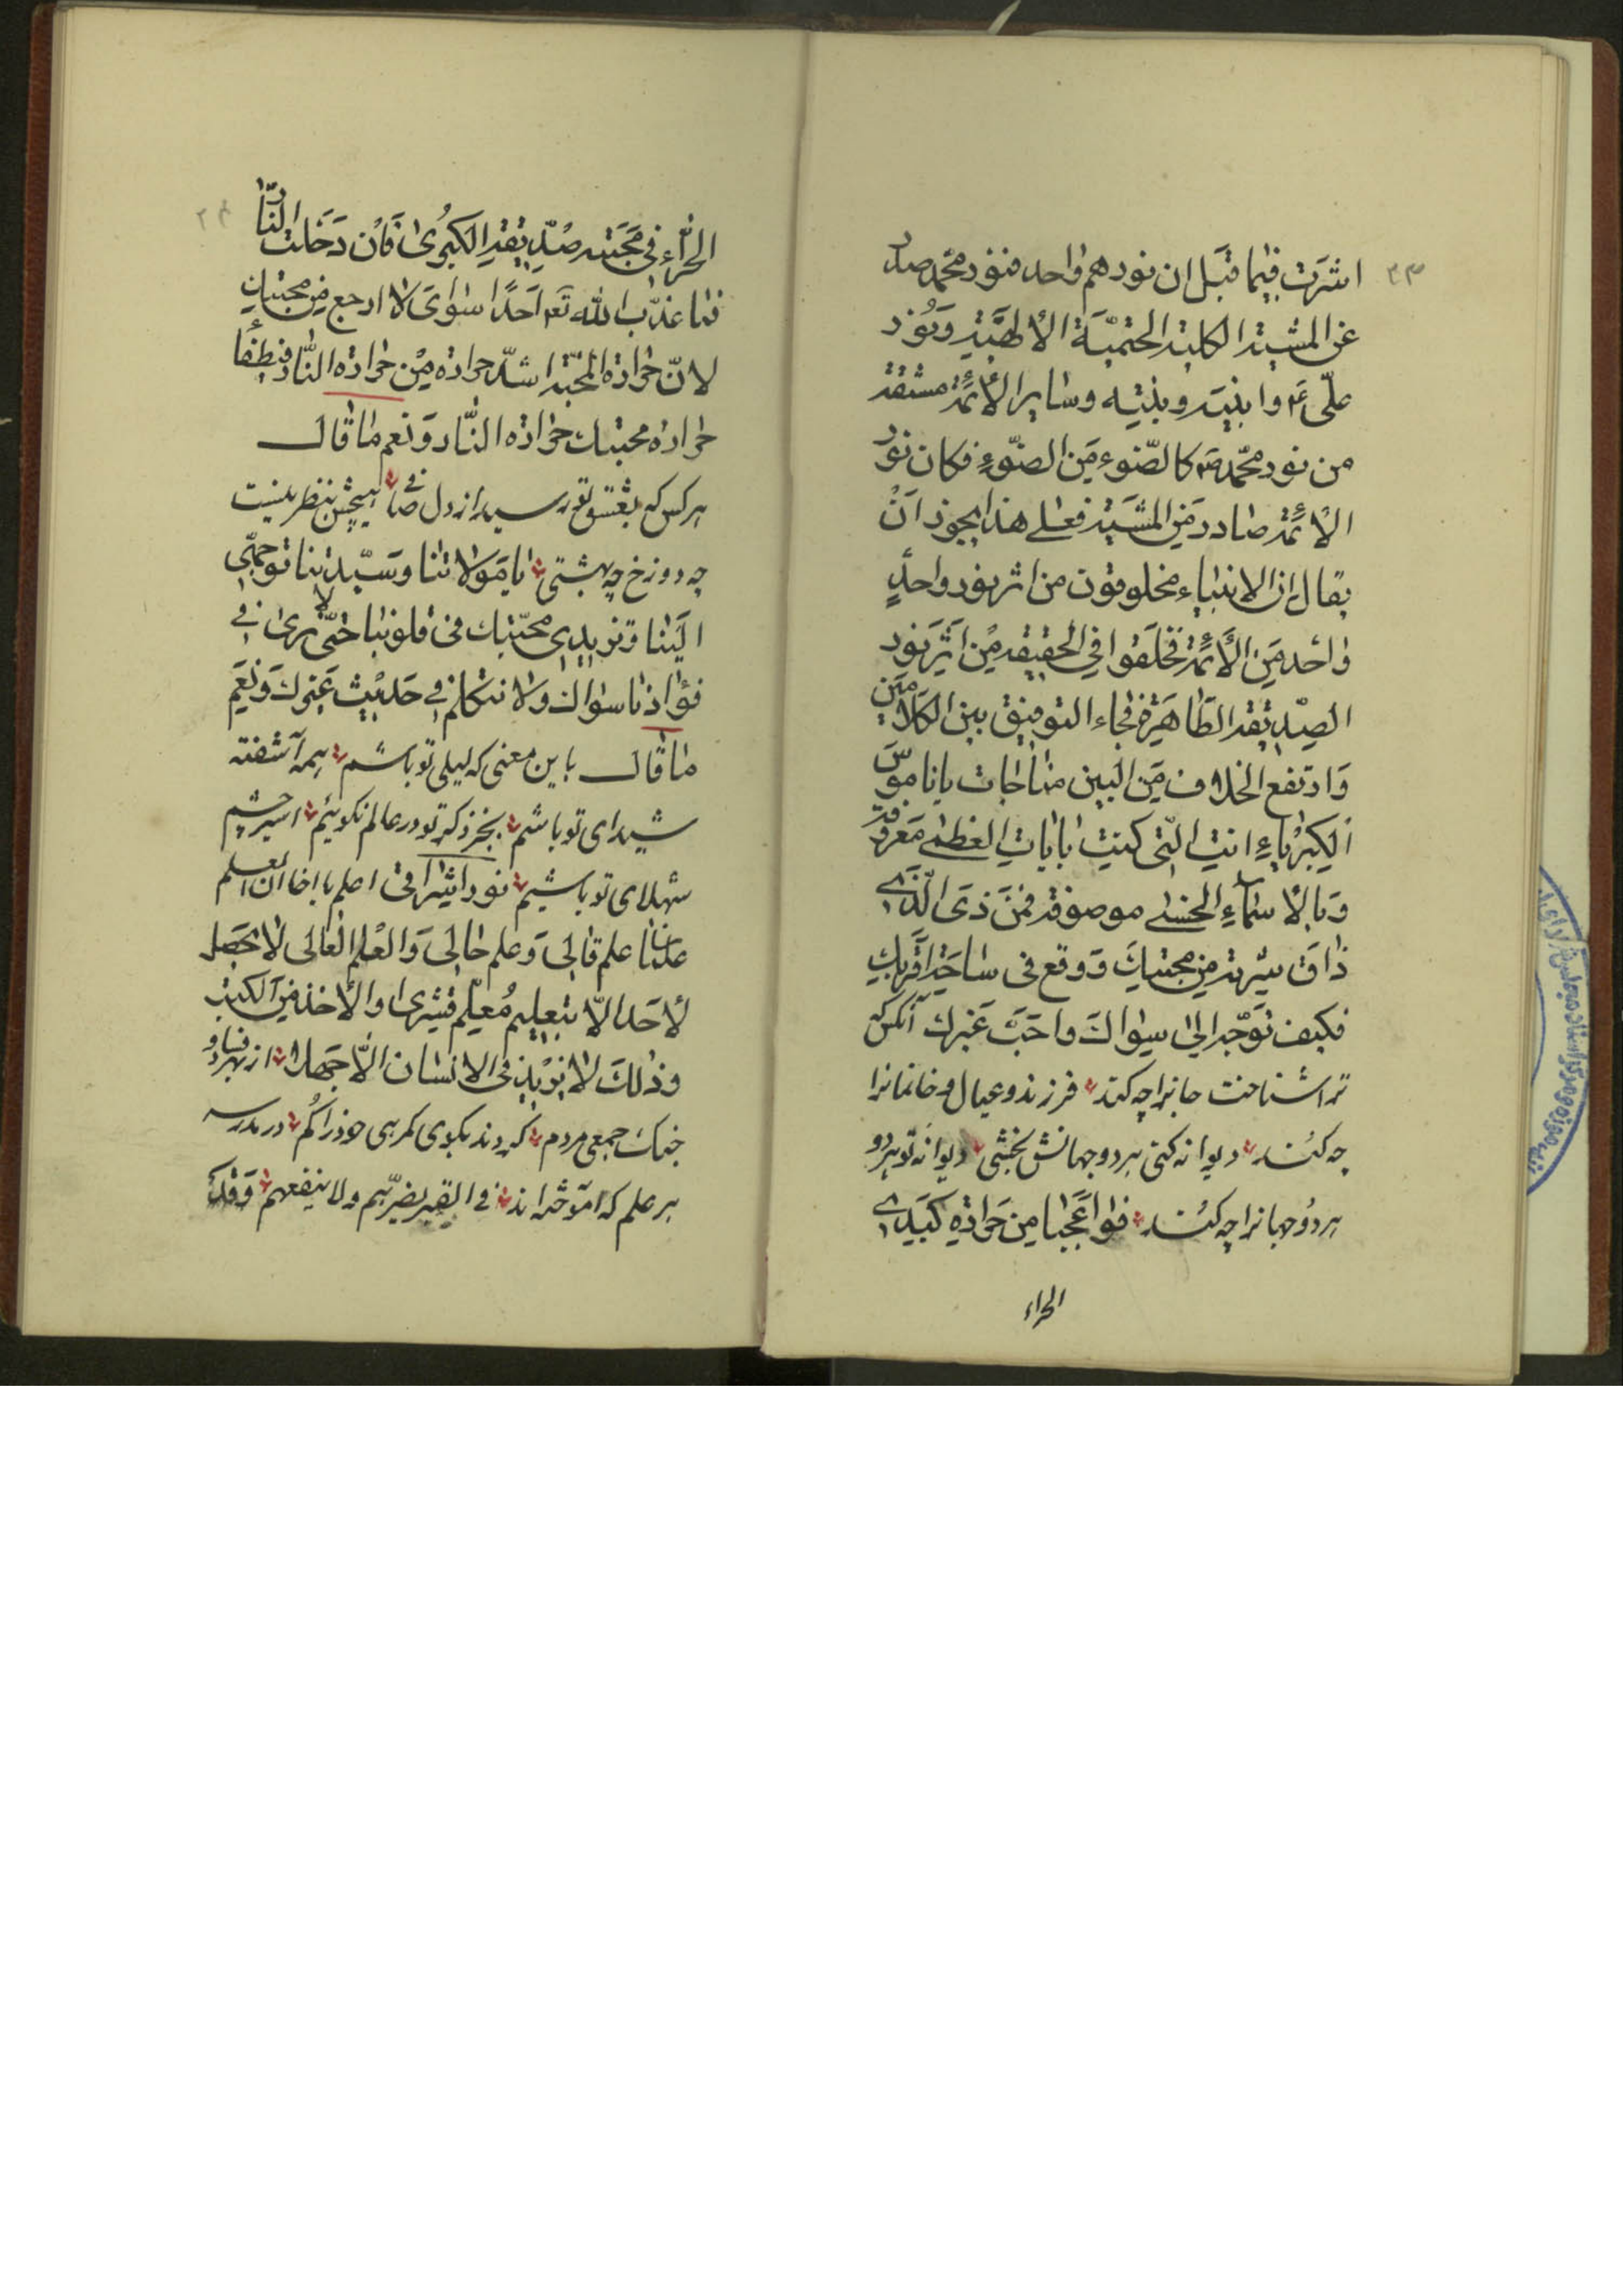 ۲۳
اشرت فیما قبل ان نورهم واحد فنور محمد صدر
عن المشیة الکلیة الحتمیة الالهیة و نور
علی ع و ابنیه و بنیه و سایر الأئمة مشتقة
من نور محمد ص کالضوء من الضوء فکان نور
الأئمة صادر من المشیة فعلی هذا یجوز ان
یقال ان الانبیاء مخلوقون من اثر نور واحدٍ
واحد من الأئمة فخلقوا فی الحقیقه من اثر نور
الصدیقة الطاهرة فجاء التوفیق بین الکلامین
و ارتفع الخلاف من البین مناجات یا ناموس
الکبریاء انت التی کنت بایات العظمی معروفة
و بالاسماء الحسنی موصوفة فمن ذی الذی
ذاق شربة من محبتک و وقع فی ساحة قربک
فکیف توجه الی سواک و احب غیرک آنکس که
ترا شناخت جانرا چه کند فرزند و عیال و خانمانرا
چه کند دیوانه کنی هر دو جهانش بخشی دیوانه تو هر دو
هر دو جهانرا چه کند فواعجبا من حرارة کبدی
الحراء
۲۴
الحراء فی محبته صدیقة الکبری فان دخلت النار
فما عذب الله تع احدا سوای لا ارجع من محبتک
لان حرارة المحبة اشد حرارة من حرارة النار فیطفأ
حرارة محبتک حرارة النار و نعم ما قال
هر کس که بعشق تو رسید از دل صافی هیچش بنظر نیست
چه دوزخ چه بهشتی یا مولاتنا و سیدتنا توجهی
الینا و تزیدی محبتک فی قلوبنا حتی لا یری فی
فؤادنا سواک ولا نتکلم فی حدیث غیرک و نعم
ما قال باین معنی که لیلی تو باشم همه آشفته
شیدای تو باشم بجز ذکر تو در عالم نگوئیم اسیر چشم
شهلای تو باشیم نور اشراقی اعلم یا اخا ان العلم
علمان علم قالی و علم حالی و العلم القالی لا یحصل
لأحد الا بتعلیم مُعلّم بشری و الأخذ من الکتب
و ذلک لا یزید فی الانسان الا جهلا از بهر فساد و
جنک جمعی مردم کردند بکوی گمرهی خود را گم در مدرسه
هر علم که آموخته اند فی القبر یضرهم ولا ینفعهم و فلک